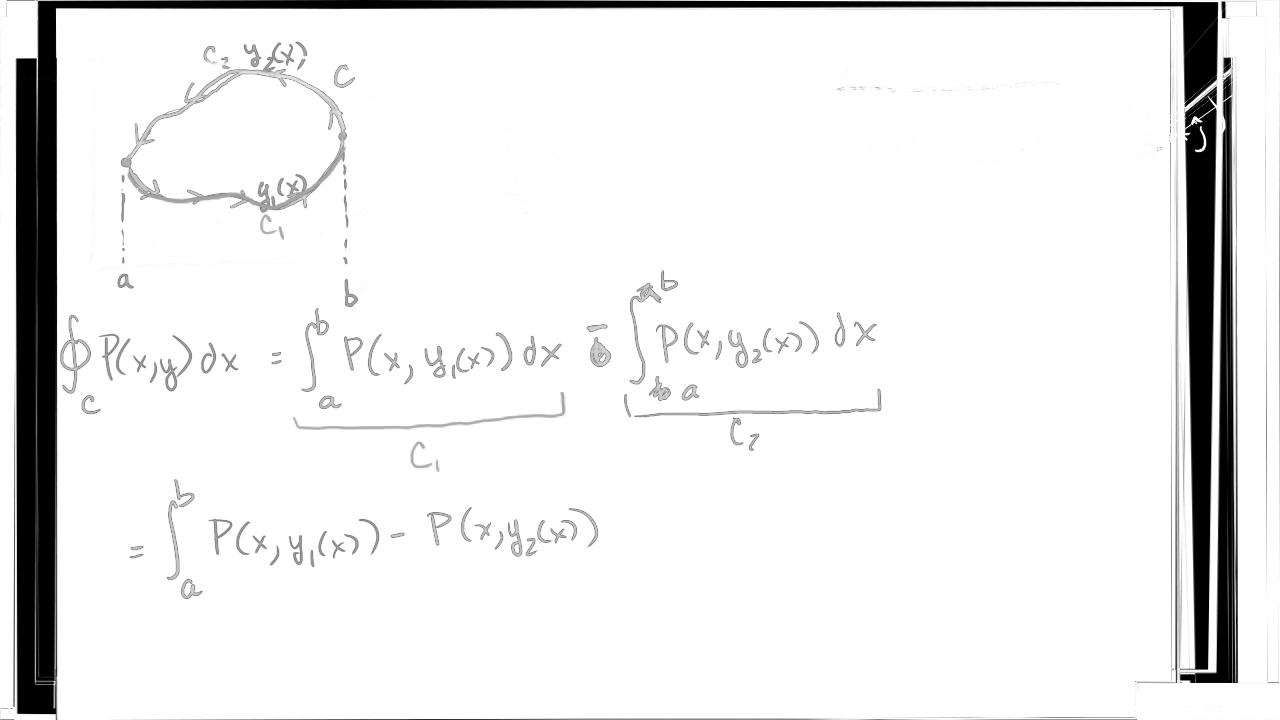 C₂ y₂(x) C
y₁(x)
C₁
a b
∮_C P(x,y) dx = ∫_a^b P(x, y₁(x)) dx - ∫_a^b P(x, y₂(x)) dx
C₁ C₂
= ∫_a^b P(x, y₁(x)) - P(x, y₂(x))